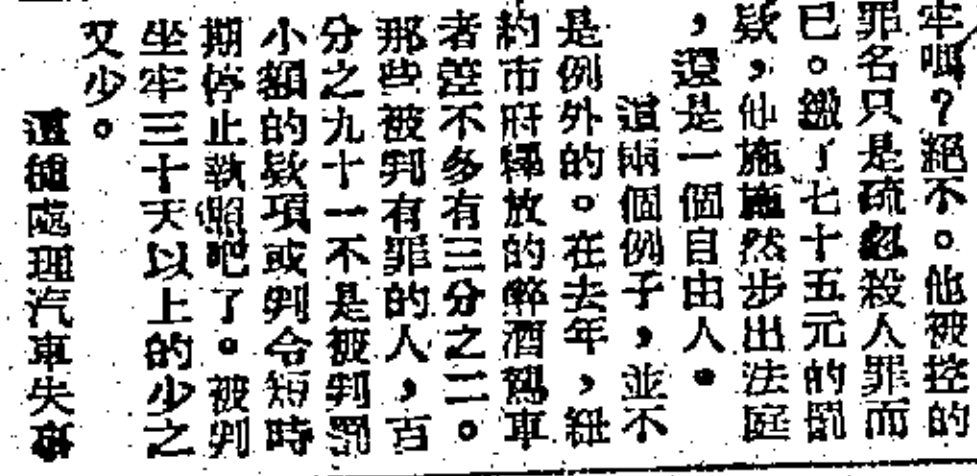 牢嗎？絕不。他被控的
罪名只是疏忽殺人罪而
已。繳了七十五元的罰
欵，他施施然步出法庭
，還是一個自由人。
這兩個例子，並不
是例外的。在去年，紐
約市府釋放的醉酒駕車
者差不多有三分之二。
那些被判有罪的人，百
分之九十一不是被判罰
小額的欵項或判令短時
期停止執照吧了。被判
坐牢三十天以上的少之
又少。
這種處理汽車失事